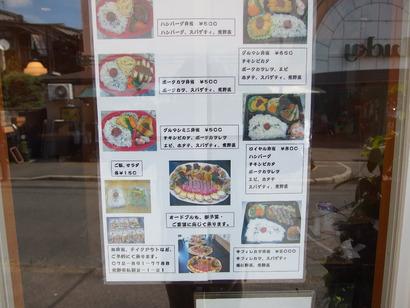 ハンバーグ弁当 ¥500
ハンバーグ、スパゲティ、煮野菜
ポークカツ弁当 ¥500
ポークカツ、スパゲティ、煮野菜
グルマンミニ弁当 ¥550
チキンピカタ、ポークカツレツ
エビ、ホタテ、スパゲティ、煮野菜
グルマン弁当 ¥650
チキンピカタ
ポークカツレツ、エビ
ホタテ、スパゲティ、煮野菜
ロイヤル弁当 ¥800
ハンバーグ
チキンピカタ
ポークカツレツ
エビ、ホタテ
スパゲティ、煮野菜
ご飯、サラダ
各¥150
オードブルも、御予算・
ご要望に応じて承ります。
お弁当、テイクアウトなど、
ご予約にて承ります。
牛フィレカツ弁当 ¥2000
牛フィレカツ
スパゲティ、煮野菜